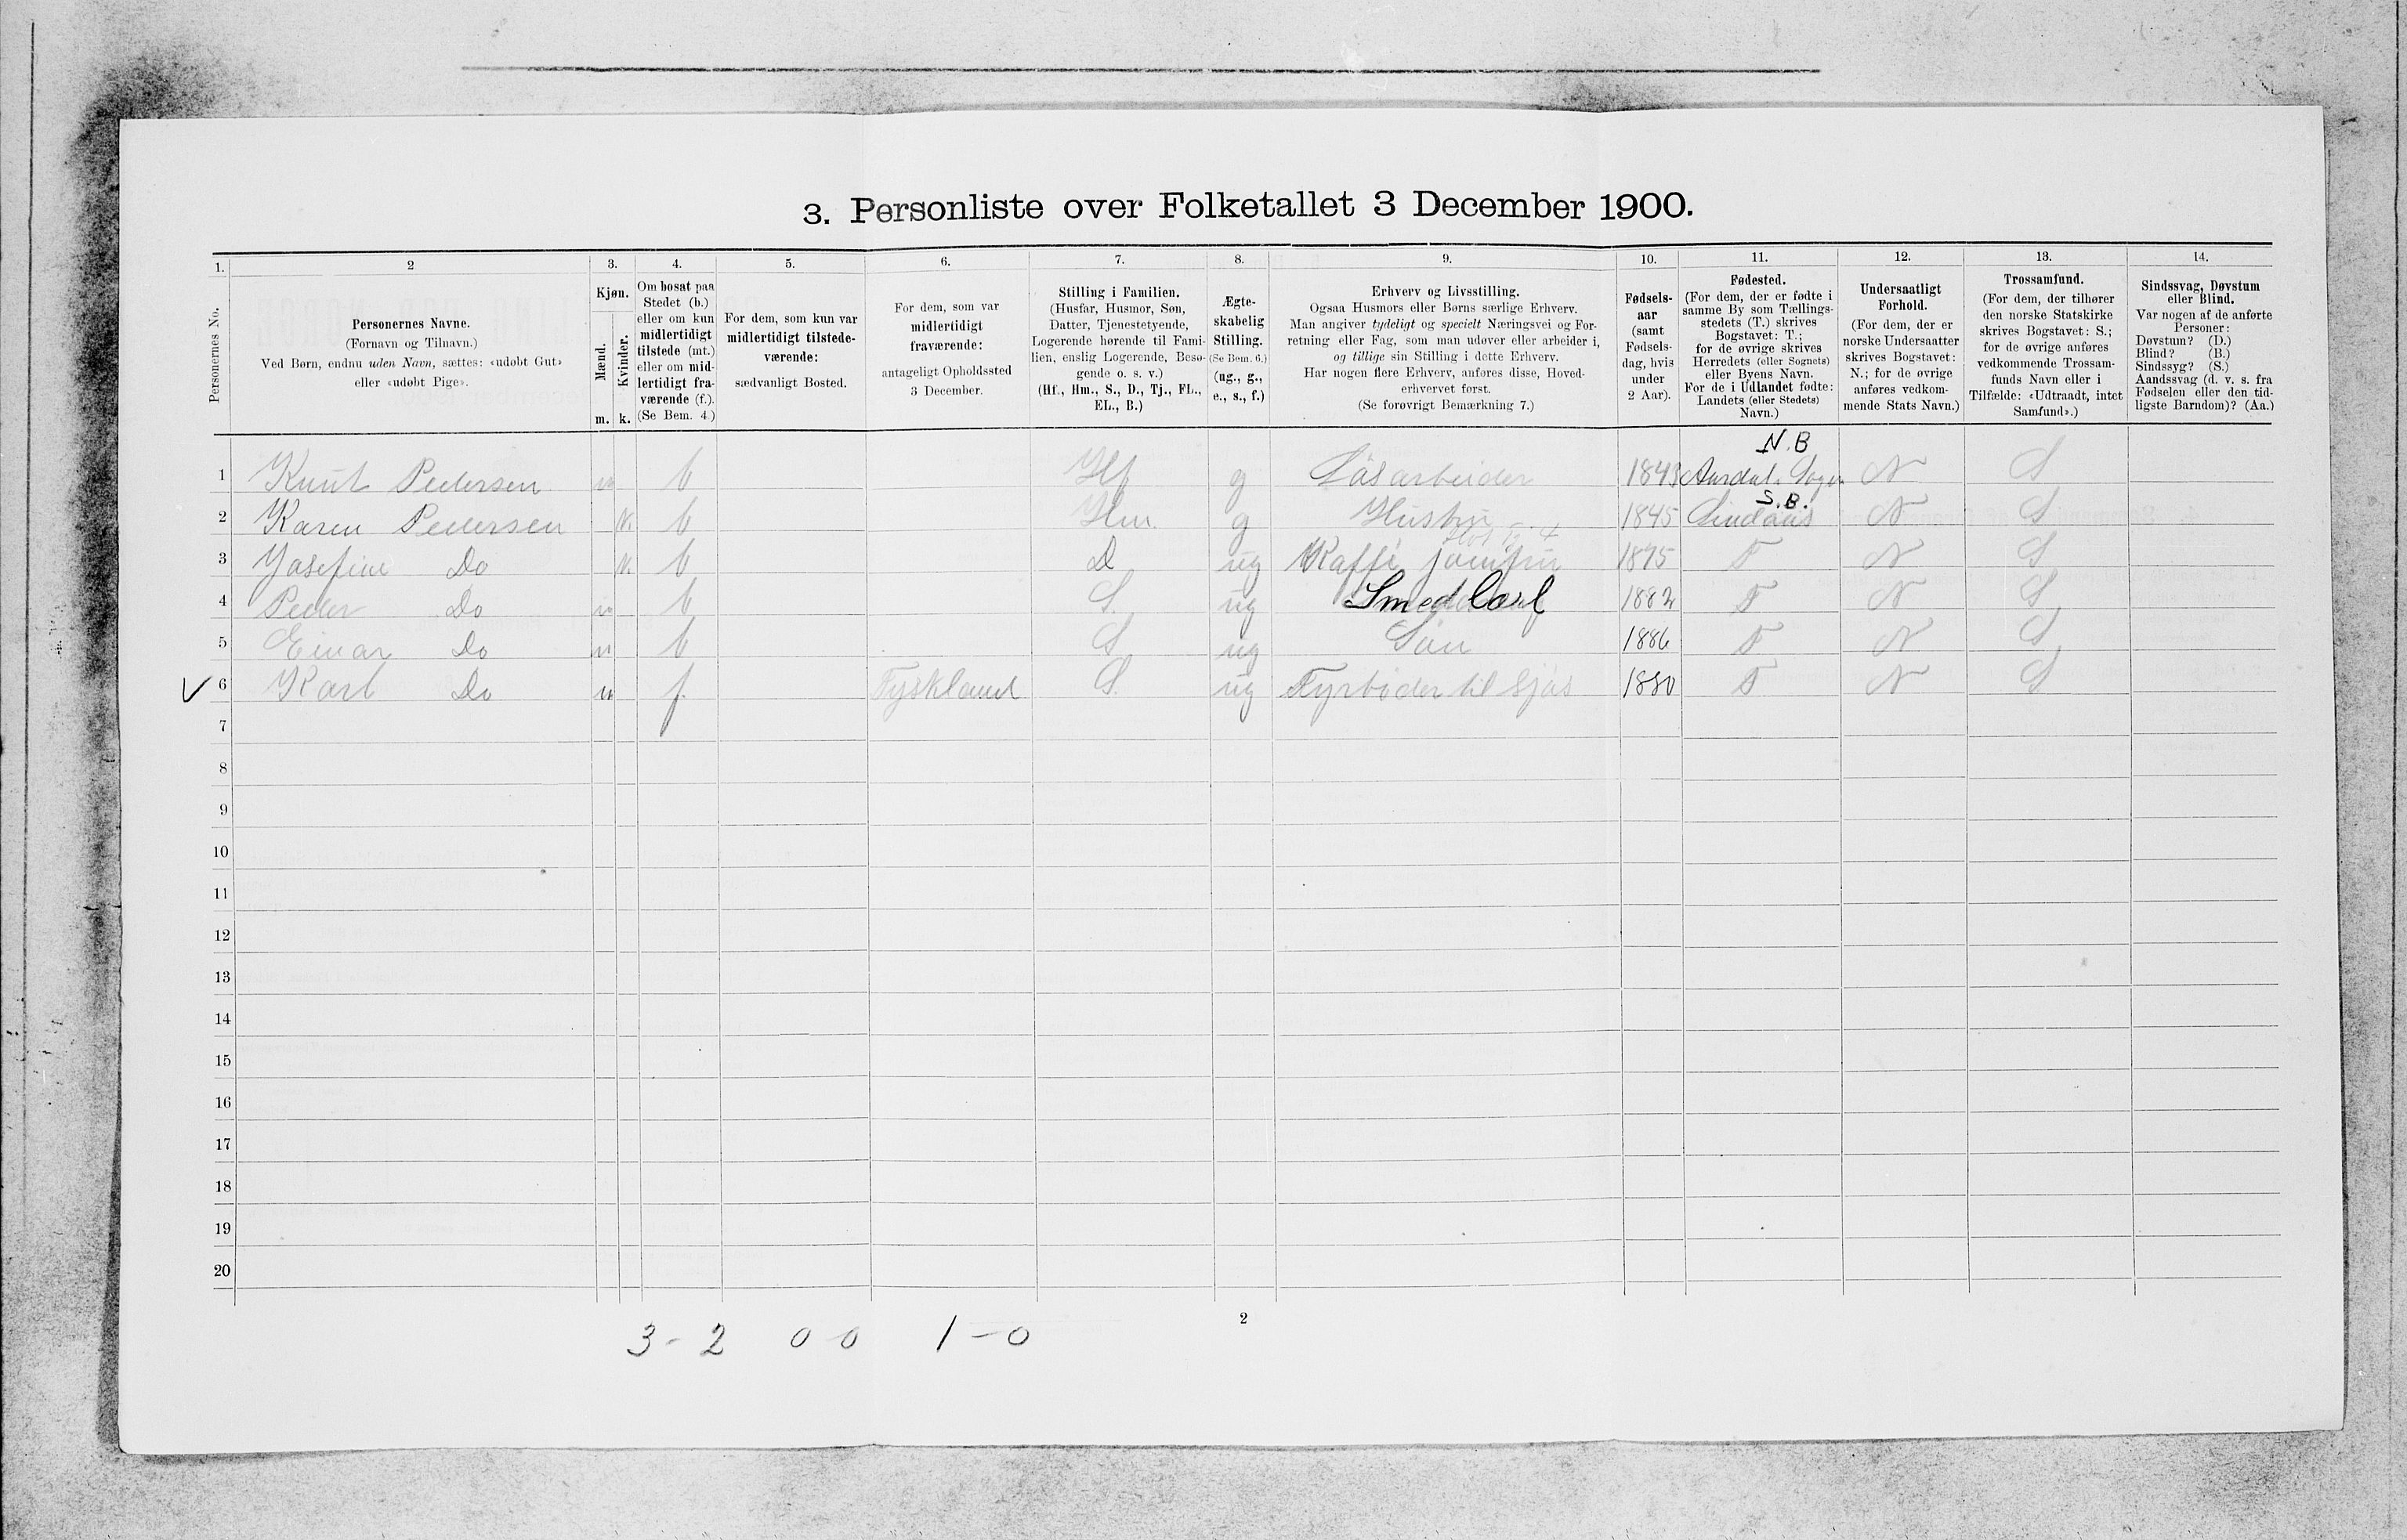 3. Personliste over Folketallet 3 December 1900.
1. 2 3. 4. 5. 6. 7. 8. 9. 10. 11. 12. 13. 14.
Personernes No.
Personernes Navne.
(Fornavn og Tilnavn.)
Ved Børn, endnu uden Navn, sættes: «udøbt Gut»
eller «udøbt Pige».
Kjøn.
Mænd.
m.
Kvinder.
k.
Om bosat paa
Stedet (b.)
eller om kun
midlertidigt
tilstede (mt.)
eller om mid-
lertidigt fra-
værende (f.).
(Se Bem. 4.)
For dem, som kun var
midlertidigt tilstede-
værende:
sædvanligt Bosted.
For dem, som var
midlertidigt
fraværende:
antageligt Opholdssted
3 December.
Stilling i Familien.
(Husfar, Husmor, Søn,
Datter, Tjenestetyende,
Logerende hørende til Fami-
lien, enslig Logerende, Besø-
gende o. s. v.)
(Hf., Hm., S., D., Tj., FL.,
EL., B.)
Ægte-
skabelig
Stilling.
(Se Bem. 6.)
(ug., g.,
e., s., f.)
Erhverv og Livsstilling.
Ogsaa Husmors eller Børns særlige Erhverv.
Man angiver tydeligt og specielt Næringsvei og For-
retning eller Fag, som man udøver eller arbeider i,
og tillige sin Stilling i dette Erhverv.
Har nogen flere Erhverv, anføres disse, Hoved-
erhvervet først.
(Se forøvrigt Bemærkning 7.)
Fødsels-
aar
(samt
Fødsels-
dag, hvis
under
2 Aar).
Fødested.
(For dem, der er fødte i
samme By som Tællings-
stedets (T.) skrives
Bogstavet: T.;
for de øvrige skrives
Herredets (eller Sognets)
eller Byens Navn.
For de i Udlandet fødte:
Landets (eller Stedets)
Navn.)
Undersaatligt
Forhold.
(For dem, der er
norske Undersaatter
skrives Bogstavet:
N.; for de øvrige
anføres vedkom-
mende Stats Navn.)
Trossamfund.
(For dem, der tilhører
den norske Statskirke
skrives Bogstavet: S.;
for de øvrige anføres
vedkommende Trossam-
funds Navn eller i
Tilfælde: «Udtraadt, intet
Samfund».)
Sindssvag, Døvstum
eller Blind.
Var nogen af de anførte
Personer:
Døvstum? (D.)
Blind? (B.)
Sindssyg? (S.)
Aandssvag (d. v. s. fra
Fødselen eller den tid-
ligste Barndom)? (Aa.)
N.B
1 Knut Pedersen m b Hf g Løsarbeider 1843 Aardal. Sogn N S
S.B.
2 Karen Pedersen k b Hm. g Hustru 1845 Lindaas N S
3 Josefine Do k b D ug Kaffi jomfru 1875 T N S
4 Peder Do m b S. ug Smed 1882 T N S
5 Einar Do m b S ug Søn 1886 T N S
√ 6 Karl Do m f. Tyskland S. ug Fyrbøder til Sjøs 1880 T N S
7
8
9
10
11
12
13
14
15
16
17
18
19
20
2
3 - 2 0 0 1 - 0